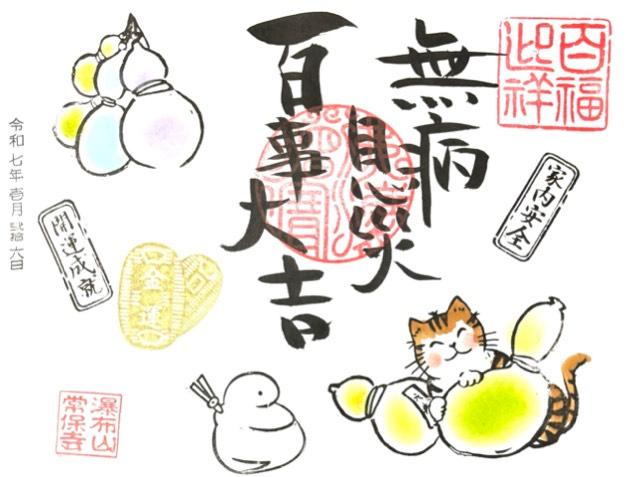 百福
迎祥
無病
息災
百事大吉
家内安全
金運
開運成就
令和七年壱月弐拾六日
瀑布山
常保寺